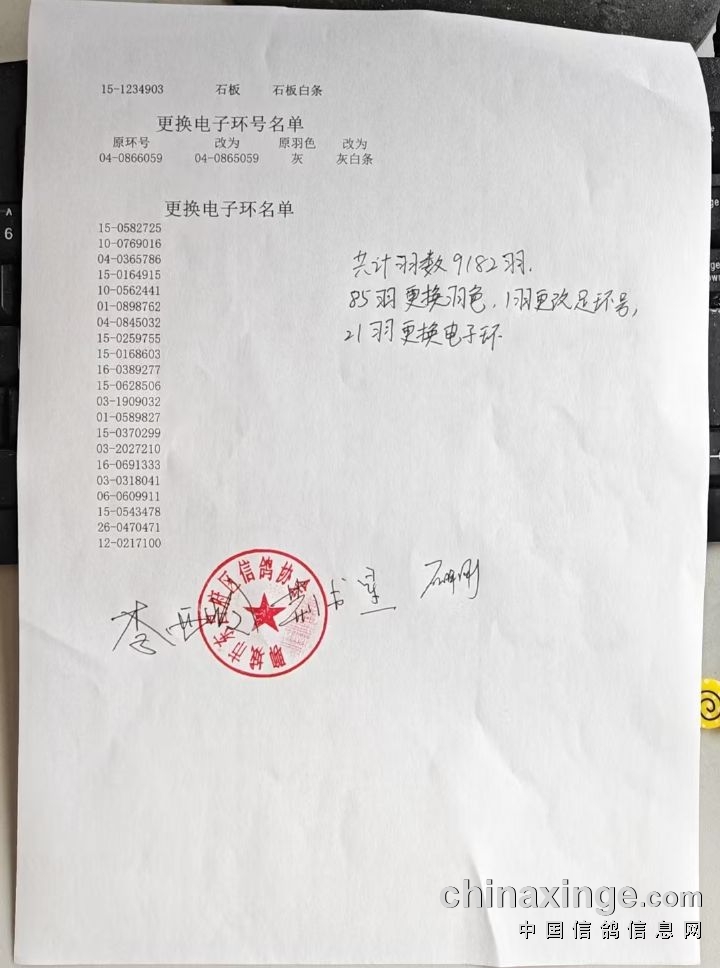 15-1234903 石板 石板白条
更换电子环号名单
原环号 改为 原羽色 改为
04-0866059 04-0865059 灰 灰白条
更换电子环名单
15-0582725
10-0769016
04-0365786
15-0164915
10-0562441
01-0898762
04-0845032
15-0259755
15-0168603
16-0389277
15-0628506
03-1909032
01-0589827
15-0370299
03-2027210
16-0691333
03-0318041
06-0609911
15-0543478
26-0470471
12-0217100
共计羽数9182羽.
85羽更换羽色,1羽更改足环号,
21羽更换电子环
聊城市东 府区信鸽协会
chinaxinge.com
中国信鸽信息网